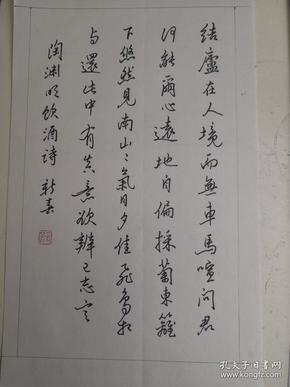 結廬在人境而無車馬喧問君
何能爾心遠地自偏採菊東籬
下悠然見南山々氣日夕佳飛鳥相
与還此中有真意欲辨已忘言
陶渊明飲酒詩 新春
孔夫子旧书网